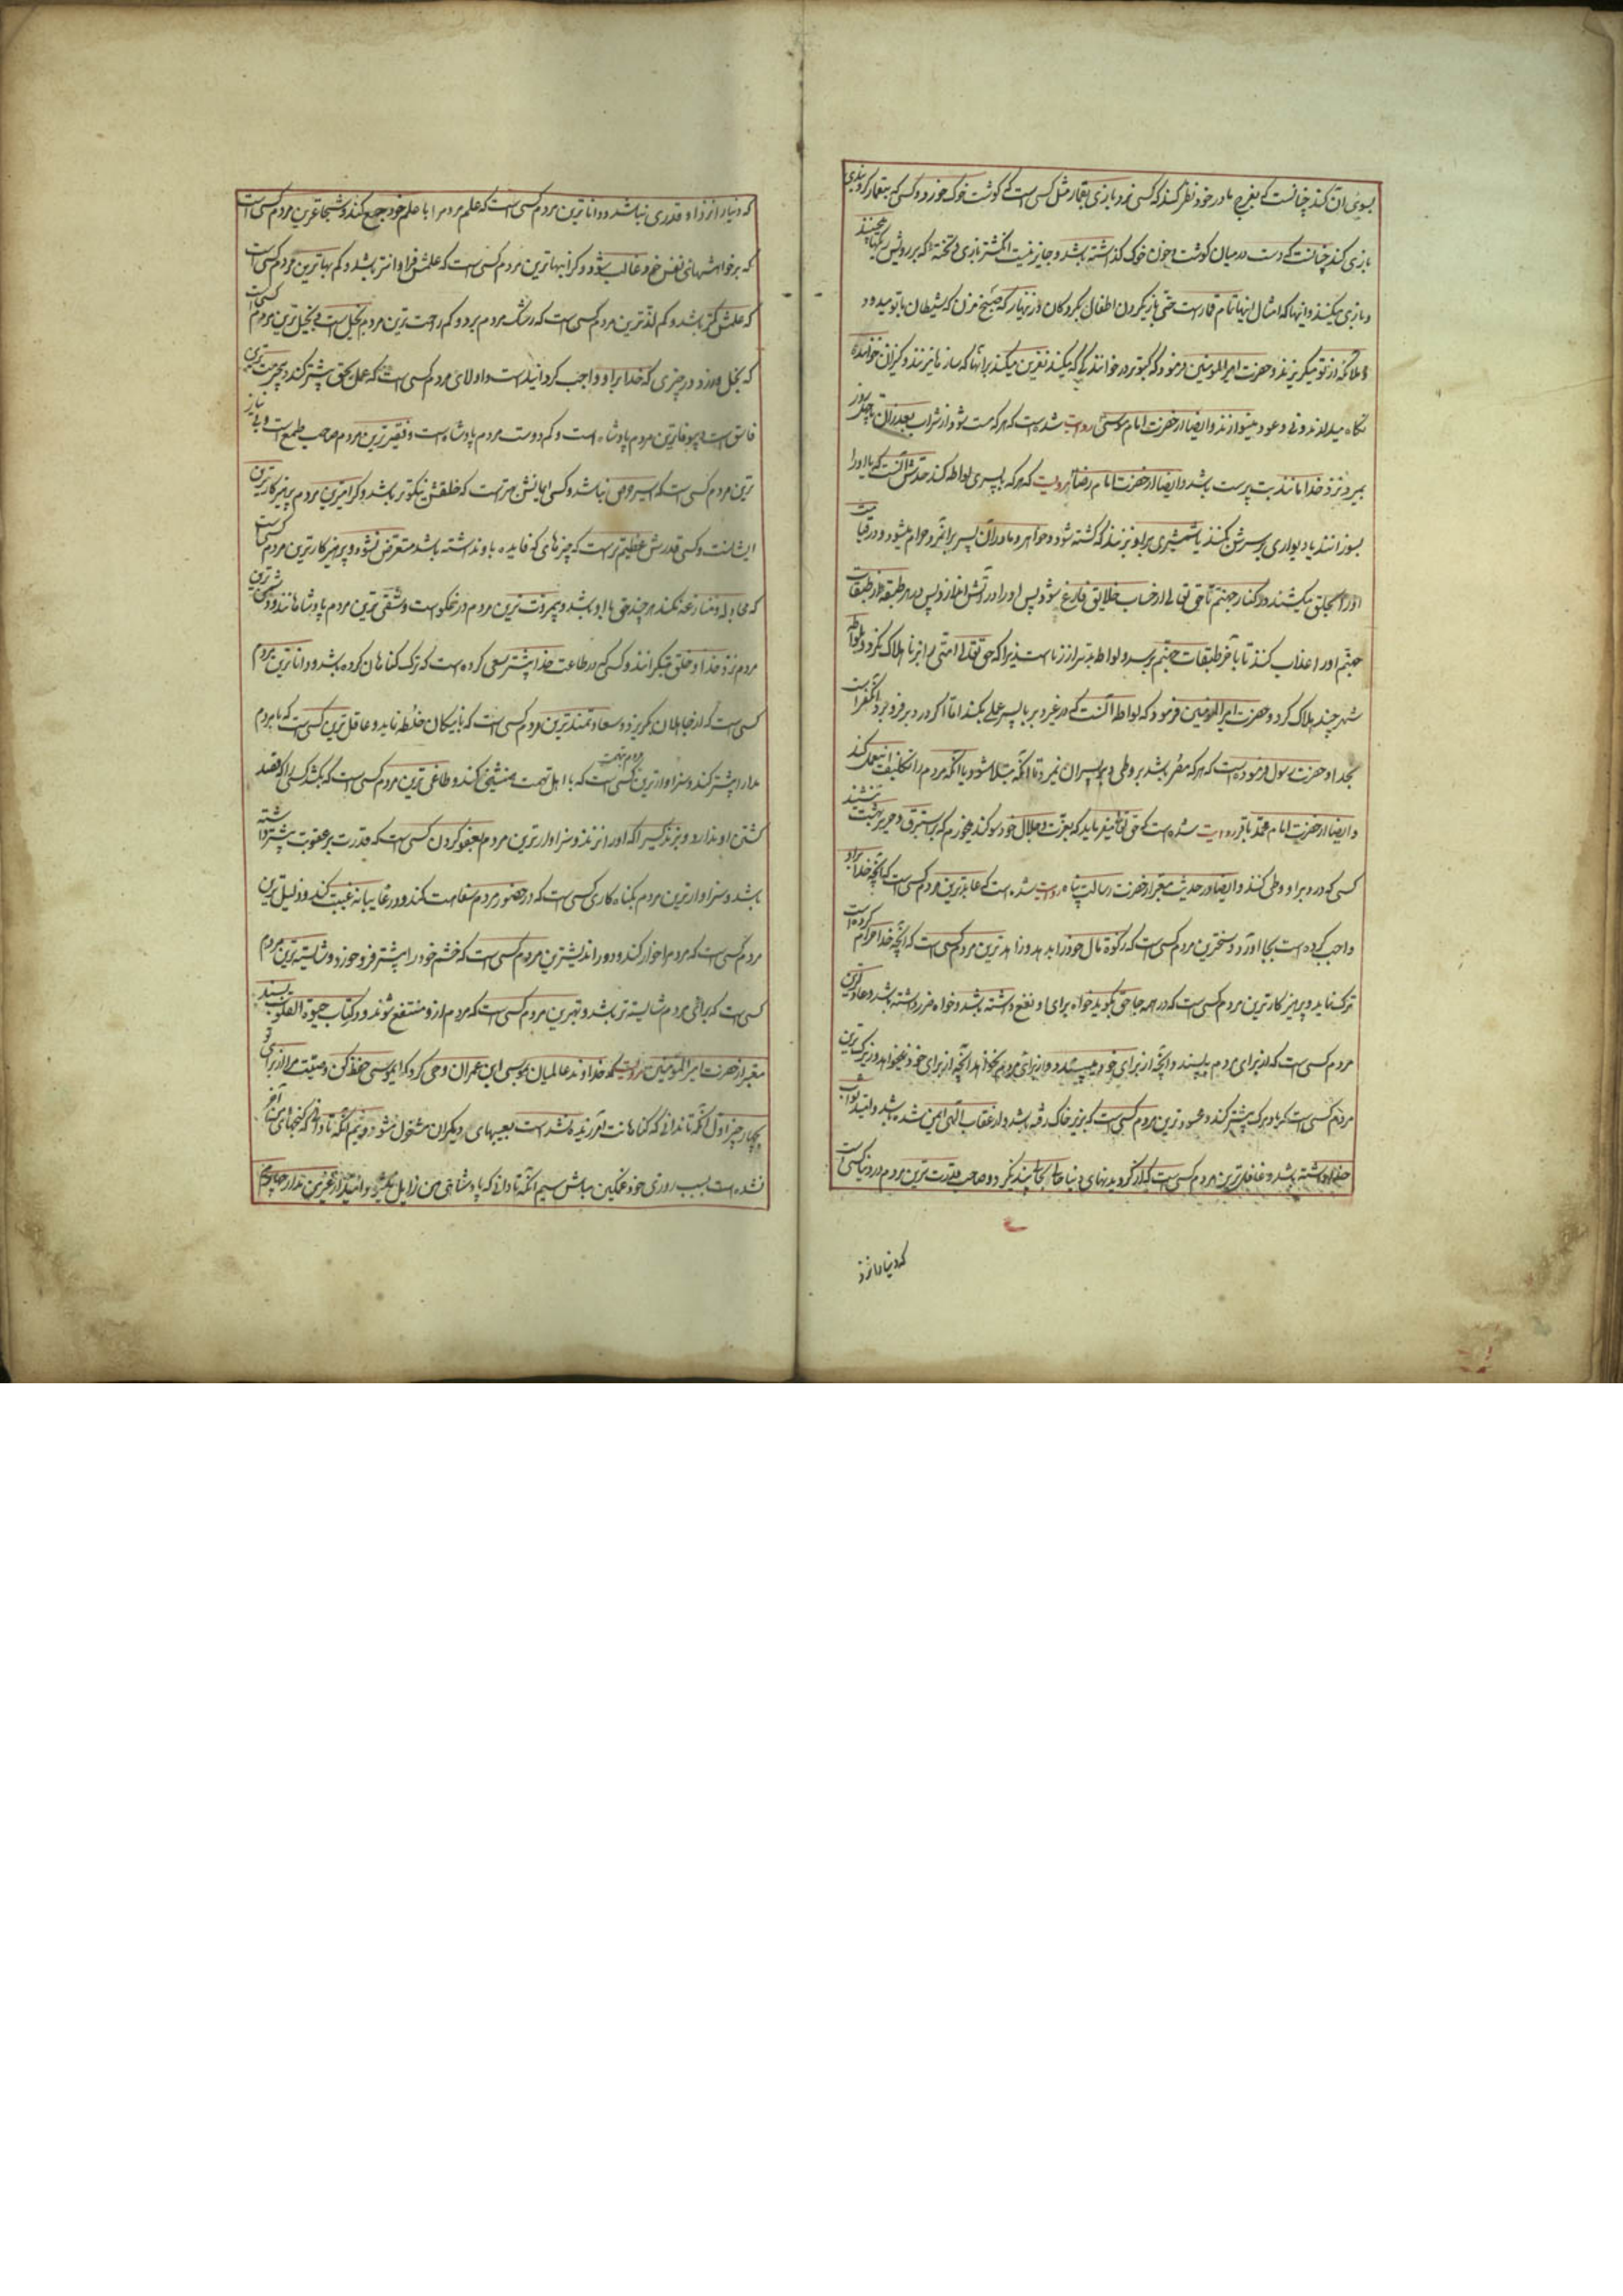 بسوی آن کند چنانست که بفرج مادر خود نظر کند که کسی نرد بازی بقمار مثل کسی است که گوشت خوک خورد و کسی که بیقمار گروبندی
بازی کند چنانست که دست در میان گوشت و خون خوک گذاشته باشد و جایز نیست انگشتر بازی و تخته که بر رویش ریگها میچینند
و بازی میکنند و اینها که امثال اینها تمام قمار است حتی بازی کردن اطفال بگردکان و زنهار که صنج مزن که شیطان با تو میدود
و ملائکه از تو میگریزند و حضرت امیرالمومنین فرمود که کبوتر در خوانندگی که میکند نفرین میکند برانها که ساز ها میزنند و کنیزان خواننده
نگاه میدارند و نی و عود مینوازند و ایضا از حضرت امام موسی روایت شده است که هر که مست شود از شراب بعد از ان تا چهل روز
بمیرد نزد خدا مانند بت پرست باشد و ایضا از حضرت امام رضا روایت که هر که با پسری لواطه کند حدش آنست که یا اورا
بسوزانند یا دیواری بر سرش بکنند یا شمشیری براو بزنند که کشته شود و خواهر و مادر آن پسر برانمرد حرام میشود و در قیامت
اورا بحلق میکشند در کنار جهنم تا حق تعالی از حساب خلایق فارغ شود پس اورا در آتش اندازد پس در هر طبقه از طبقات
جهنم اورا عذاب کند تا بآخر طبقات جهنم برسد و لواط بدتر از زنا است زیرا که حق تعالی امتی را بزنا هلاک نکرد و بلواطه
شهر چند هلاک کرد و حضرت امیرالمومنین فرمود که لواط آنست که در غیر دبر با پسر عمل بکند اما اگر در دبر فرو برد انکفر است
بخدا و حضرت رسول فرموده است که هر که مصر باشد بر وطی دبر پسران نمیرد تا آنکه مبتلا شود یا آنکه مردم را تکلیف انعمل کند
و ایضا از حضرت امام محمد باقر روایت شده است که حق تعالی میفرماید که بعزت و جلال خود سوگند میخورم که بر استبرق و حریر بهشت ننشیند
کسی که در دبر او وطی کنند و ایضا در حدیث معتبر از حضرت رسالت پناه روایت شده است که عابدترین مردم کسی است که آنچه خدا براو
واجب کرده است بجا آورد و سخی‌ترین مردم کسی است که زکوة مال خود را بدهد و زاهدترین مردم کسی است که آنچه خدا حرام کرده است
ترک نماید و پرهیزکارترین مردم کسی است که در همه جا حق بگوید خواه برای او نفع داشته باشد و خواه ضرر داشته باشد و عادلترین
مردم کسی است که از برای مردم بپسندد آنچه از برای خود میپسندد و از برای مردم نخواهد آنچه از برای خود نمیخواهد و زیرک ترین
مردم کسی است که یاد مرگ بیشتر کند و محسودترین مردم کسی است که بزیر خاک رفته باشد و از عقاب الهی ایمن شده باشد و امید ثواب
خدا داشته باشد و غافل ترین مردم کسی است که از گردیدنهای دنیا از حال بحالی پند نگیرد و صاحب قدرت ترین مردم در دنیا کسی است
که دنیا را نزد
که دنیا را نزد او قدری نباشد و داناترین مردم کسی است که علم مردم را با علم خود جمع کند و شجاعترین مردم کسی است
که بر خواهشهای نفس خود غالب شود و گرانبهاترین مردم کسی است که علمش فراوانتر باشد و کم بهاترین مردم کسی است
که علمش کمتر باشد و کم لذت ترین مردم کسی است که رشک مردم برد و کم راحت ترین مردم بخیل است و بخیل ترین مردم کسی است
که بخل ورزد در چیزی که خدا براو واجب گردانیده است و اولای مردم کسی است که عمل بحق بیشتر کند و بیحرمت ترین
فاسق است و بیوفاترین مردم پادشاه است و کم دوست مردم پادشاه است و فقیرترین مردم صاحب طمع است و بی نیاز
ترین مردم کسی است که اسیر حرص نباشد و کسی ایمانش بهتر است که خلقش نیکوتر باشد و گرامی ترین مردم پرهیزکارترین
ایشانست و کسی قدرش عظیم تر است که چیزهای که فایده باو نداشته باشد متعرض نشود و پرهیزکارترین مردم کسی است
که مجادله و منازعه نکند هر چند حق با او باشد و بیمروت ترین مردم دروغگو است و شقی ترین مردم پادشاهانند و دشمن ترین
مردم نزد خدا و خلق متکبرانند و کسی که در طاعت خدا بیشتر سعی کرده است که ترک گناهان کرده باشد و داناترین مردم
کسی است که از جاهلان بگریزد و سعادتمندترین مردم کسی است که با نیکان خلطه نماید و عاقل ترین کسی است که با مردم
مدارا بیشتر کند و سزاوارترین مردم بتهمت کسی است که با اهل تهمت همنشینی کند و طاغی ترین مردم کسی است که بکشد کسی را که قصد
کشتن او ندارد و بزند کسی را که اورا نزند و سزاوارترین مردم بعفو کردن کسی است که قدرت بر عقوبت بیشتر داشته
باشد و سزاوارترین مردم بگناه کاری کسی است که در حضور مردم سفاهت کند و در غایبانه غیبت کند و ذلیل ترین
مردم کسی است که مردم را خوار کند و دوراندیشترین مردم کسی است که خشم خود را بیشتر فرو خورد و شایسته ترین مردم
کسی است که برای مردم شایسته تر باشد و بهترین مردم کسی است که مردم از او منتفع شوند و در کتاب حیوة القلوب بسند
معتبر از حضرت امیرالمومنین روایت که خداوند عالمیان بموسی ابن عمران وحی کرد که ای موسی حفظ کن وصیت مرا از برای تو
بچهار چیز اول آنکه تا ندانی که گناهانت آمرزیده نشده است بعیبهای دیگران مشغول مشو دویم آنکه تا دانی که گنجهای من آخر
نشده است بسبب روزی خود غمگین مباش سیم آنکه تا دانی که پادشاهی من زایل نگردید امید از غیر من مدار چهارم